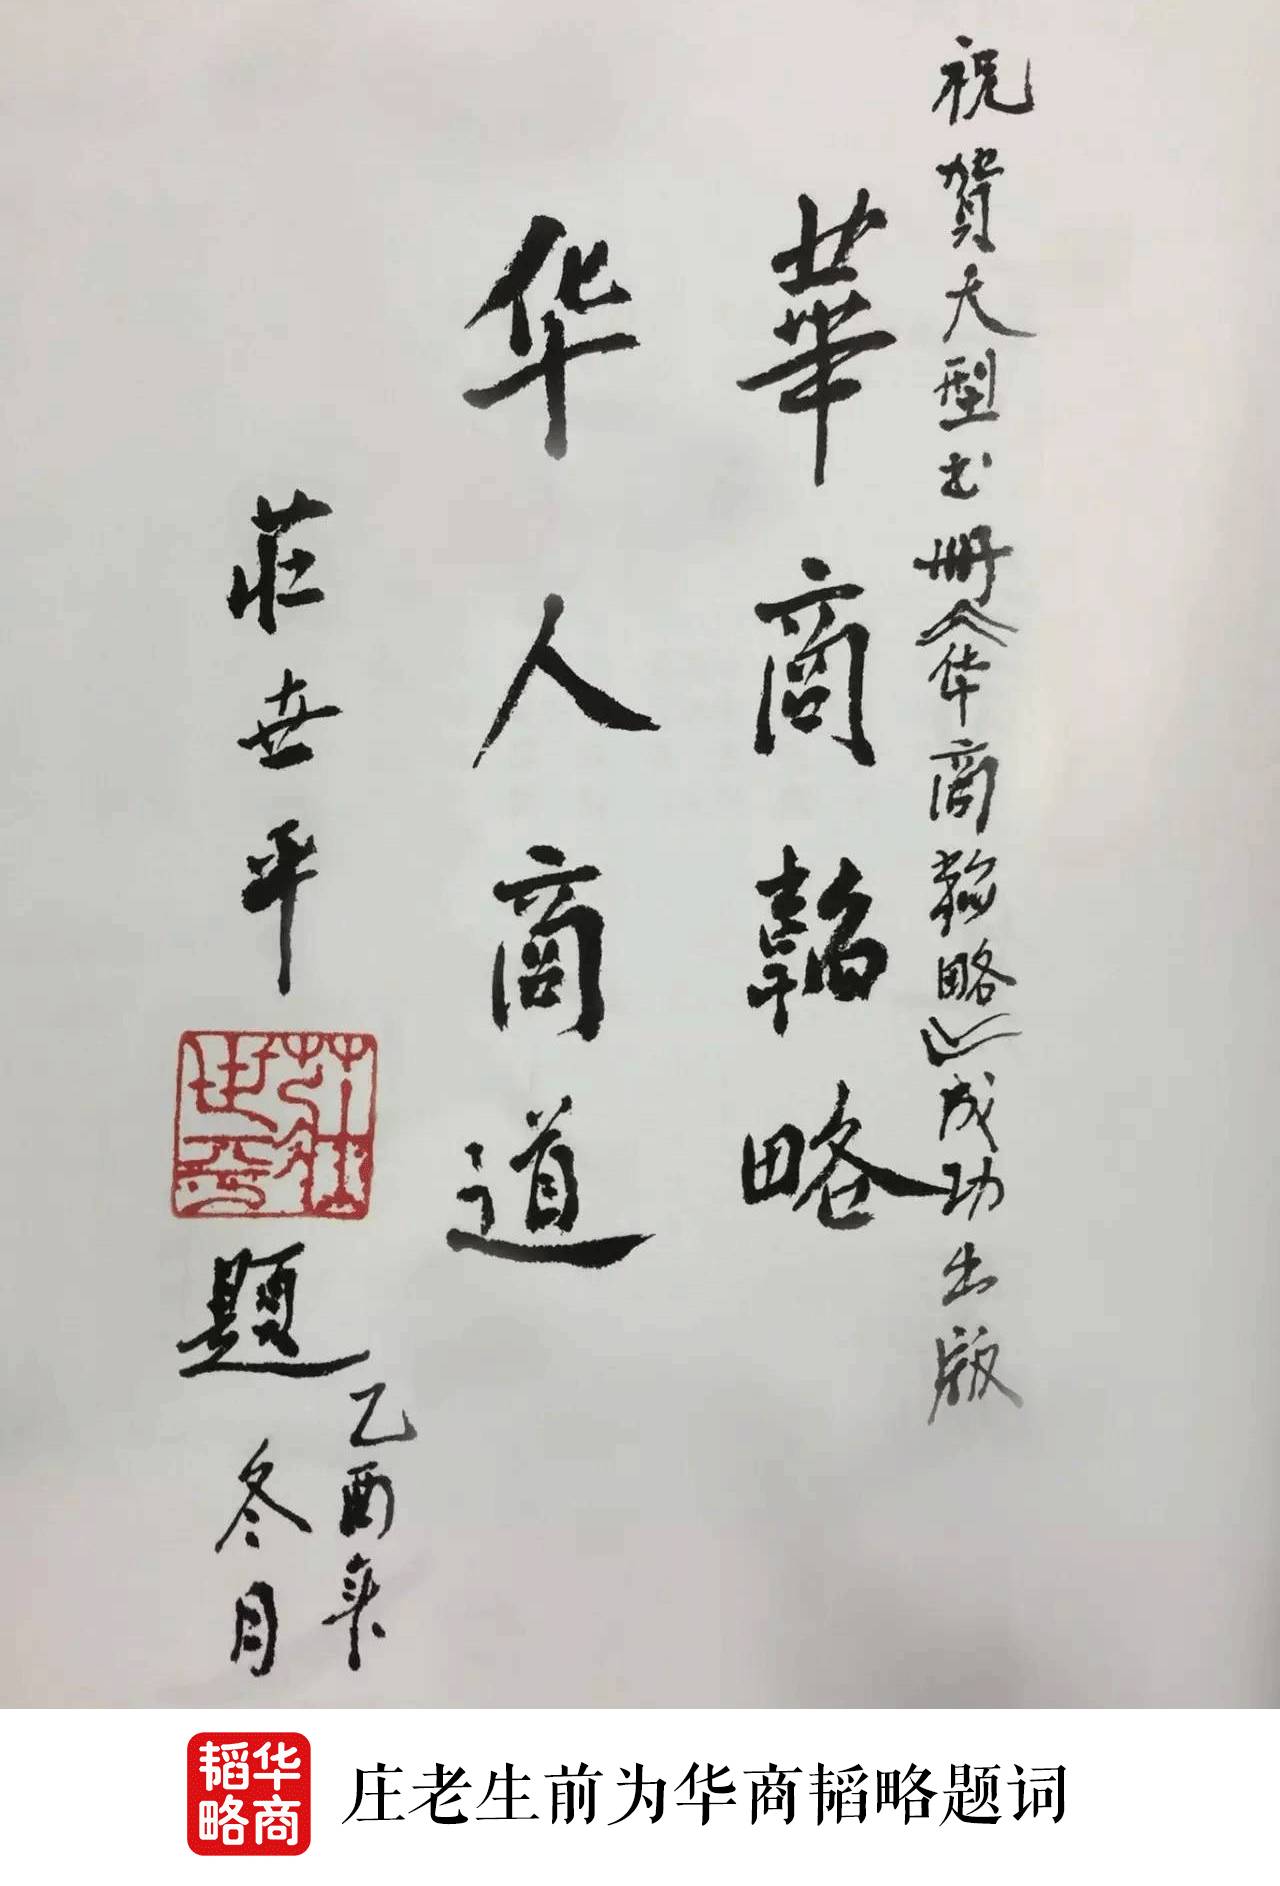 祝贺大型书册《华商韬略》成功出版
華商韜略
华人商道
莊世平
莊世平
題
乙酉年
冬月
华商韬略
庄老生前为华商韬略题词